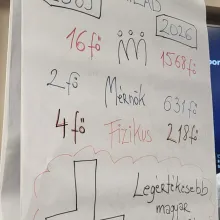 2026
16 fő 1568 fő
2 fő Mérnök 631 fő
4 fő Fizikus 218 fő
Legértékesebb
magyar